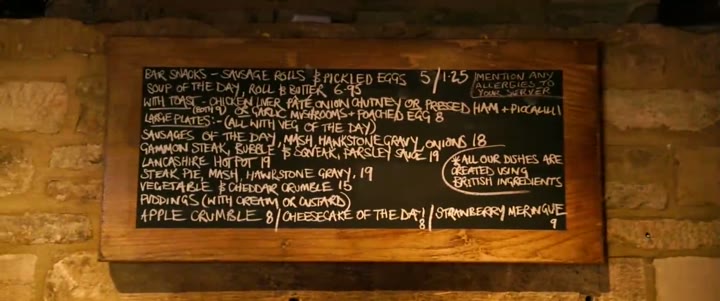 BAR SNACKS - SAUSAGE ROLLS & PICKLED EGGS 5/1.25
MENTION ANY
ALLERGIES TO
YOUR SERVER
SOUP OF THE DAY, ROLL & BUTTER 6.95
WITH TOAST - CHICKEN LIVER PATE, ONION CHUTNEY OR PRESSED HAM + PICCALLI
(BOTH 9) OR GARLIC MUSHROOMS + POACHED EGG 8
LARGE PLATES:- (ALL WITH VEG OF THE DAY)
SAUSAGES OF THE DAY, MASH, HAWKSTONE GRAVY, ONIONS 18
GAMMON STEAK, BUBBLE & SQUEAK, PARSLEY SAUCE 19
LANCASHIRE HOTPOT 19
STEAK PIE, MASH, HAWKSTONE GRAVY, 19
VEGETABLE & CHEDDAR CRUMBLE 15
* ALL OUR DISHES ARE
CREATED USING
BRITISH INGREDIENTS
PUDDINGS (WITH CREAM OR CUSTARD)
APPLE CRUMBLE 8/CHEESECAKE OF THE DAY/STRAWBERRY MERINGUE
8 9